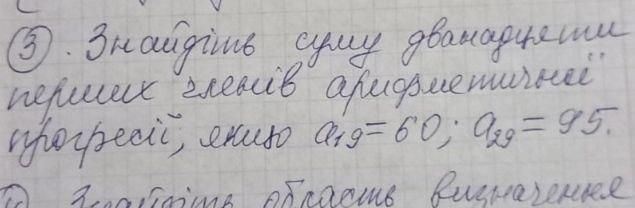 ③. Знайдіть суму дванадцяти
перших членів арифметичної
прогресії, якщо a₁₉=60; a₂₉=95.
Знайдіть область визначення